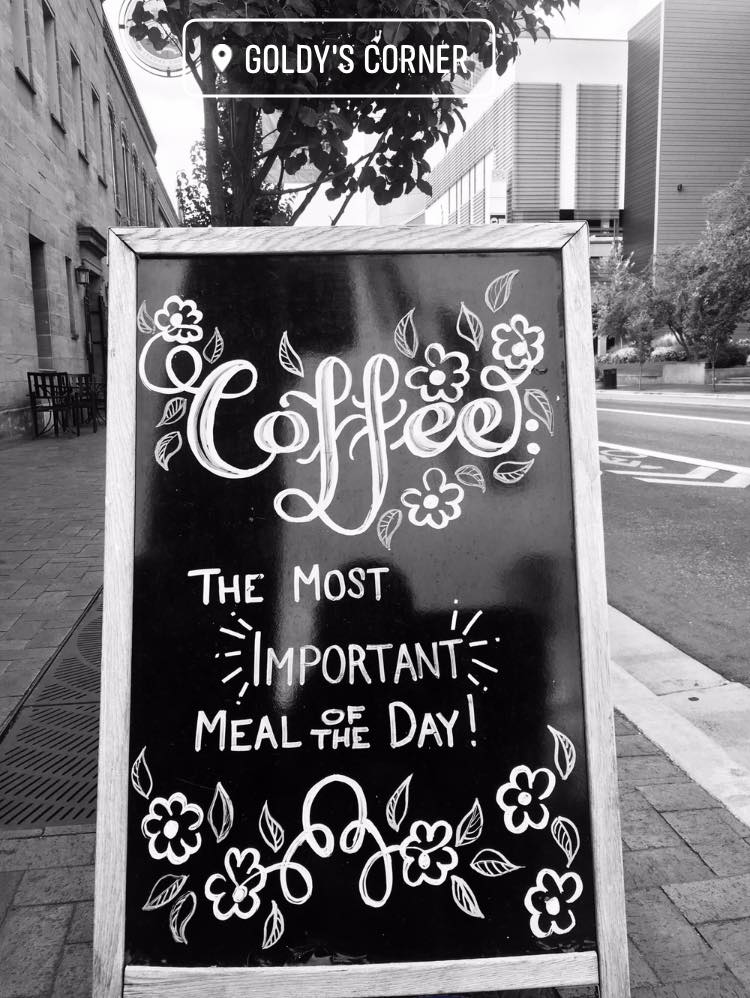 GOLDY'S CORNER
Coffee:
THE MOST
IMPORTANT
MEAL OF THE DAY!